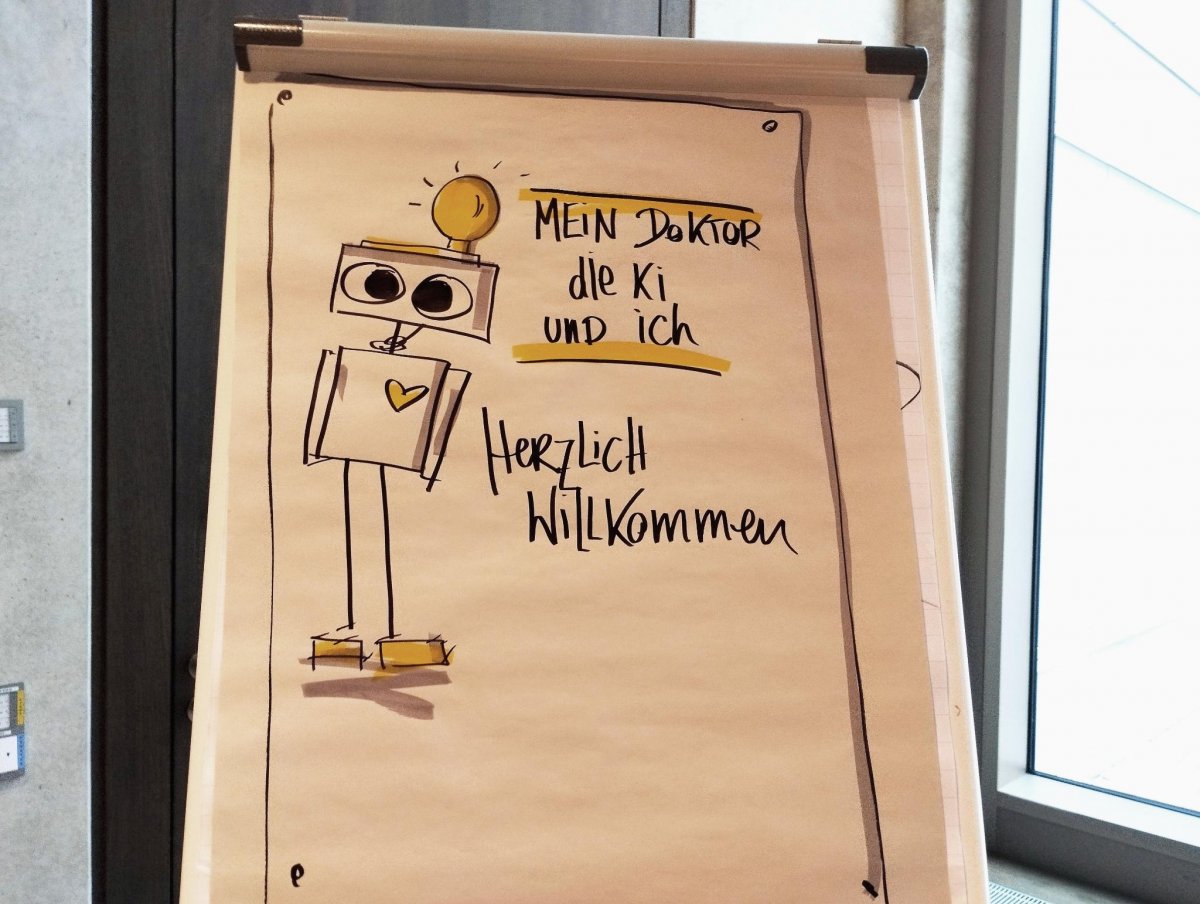 MEIN DOKTOR
die Ki
und ich
HERZLICH
WILLKOMMEN